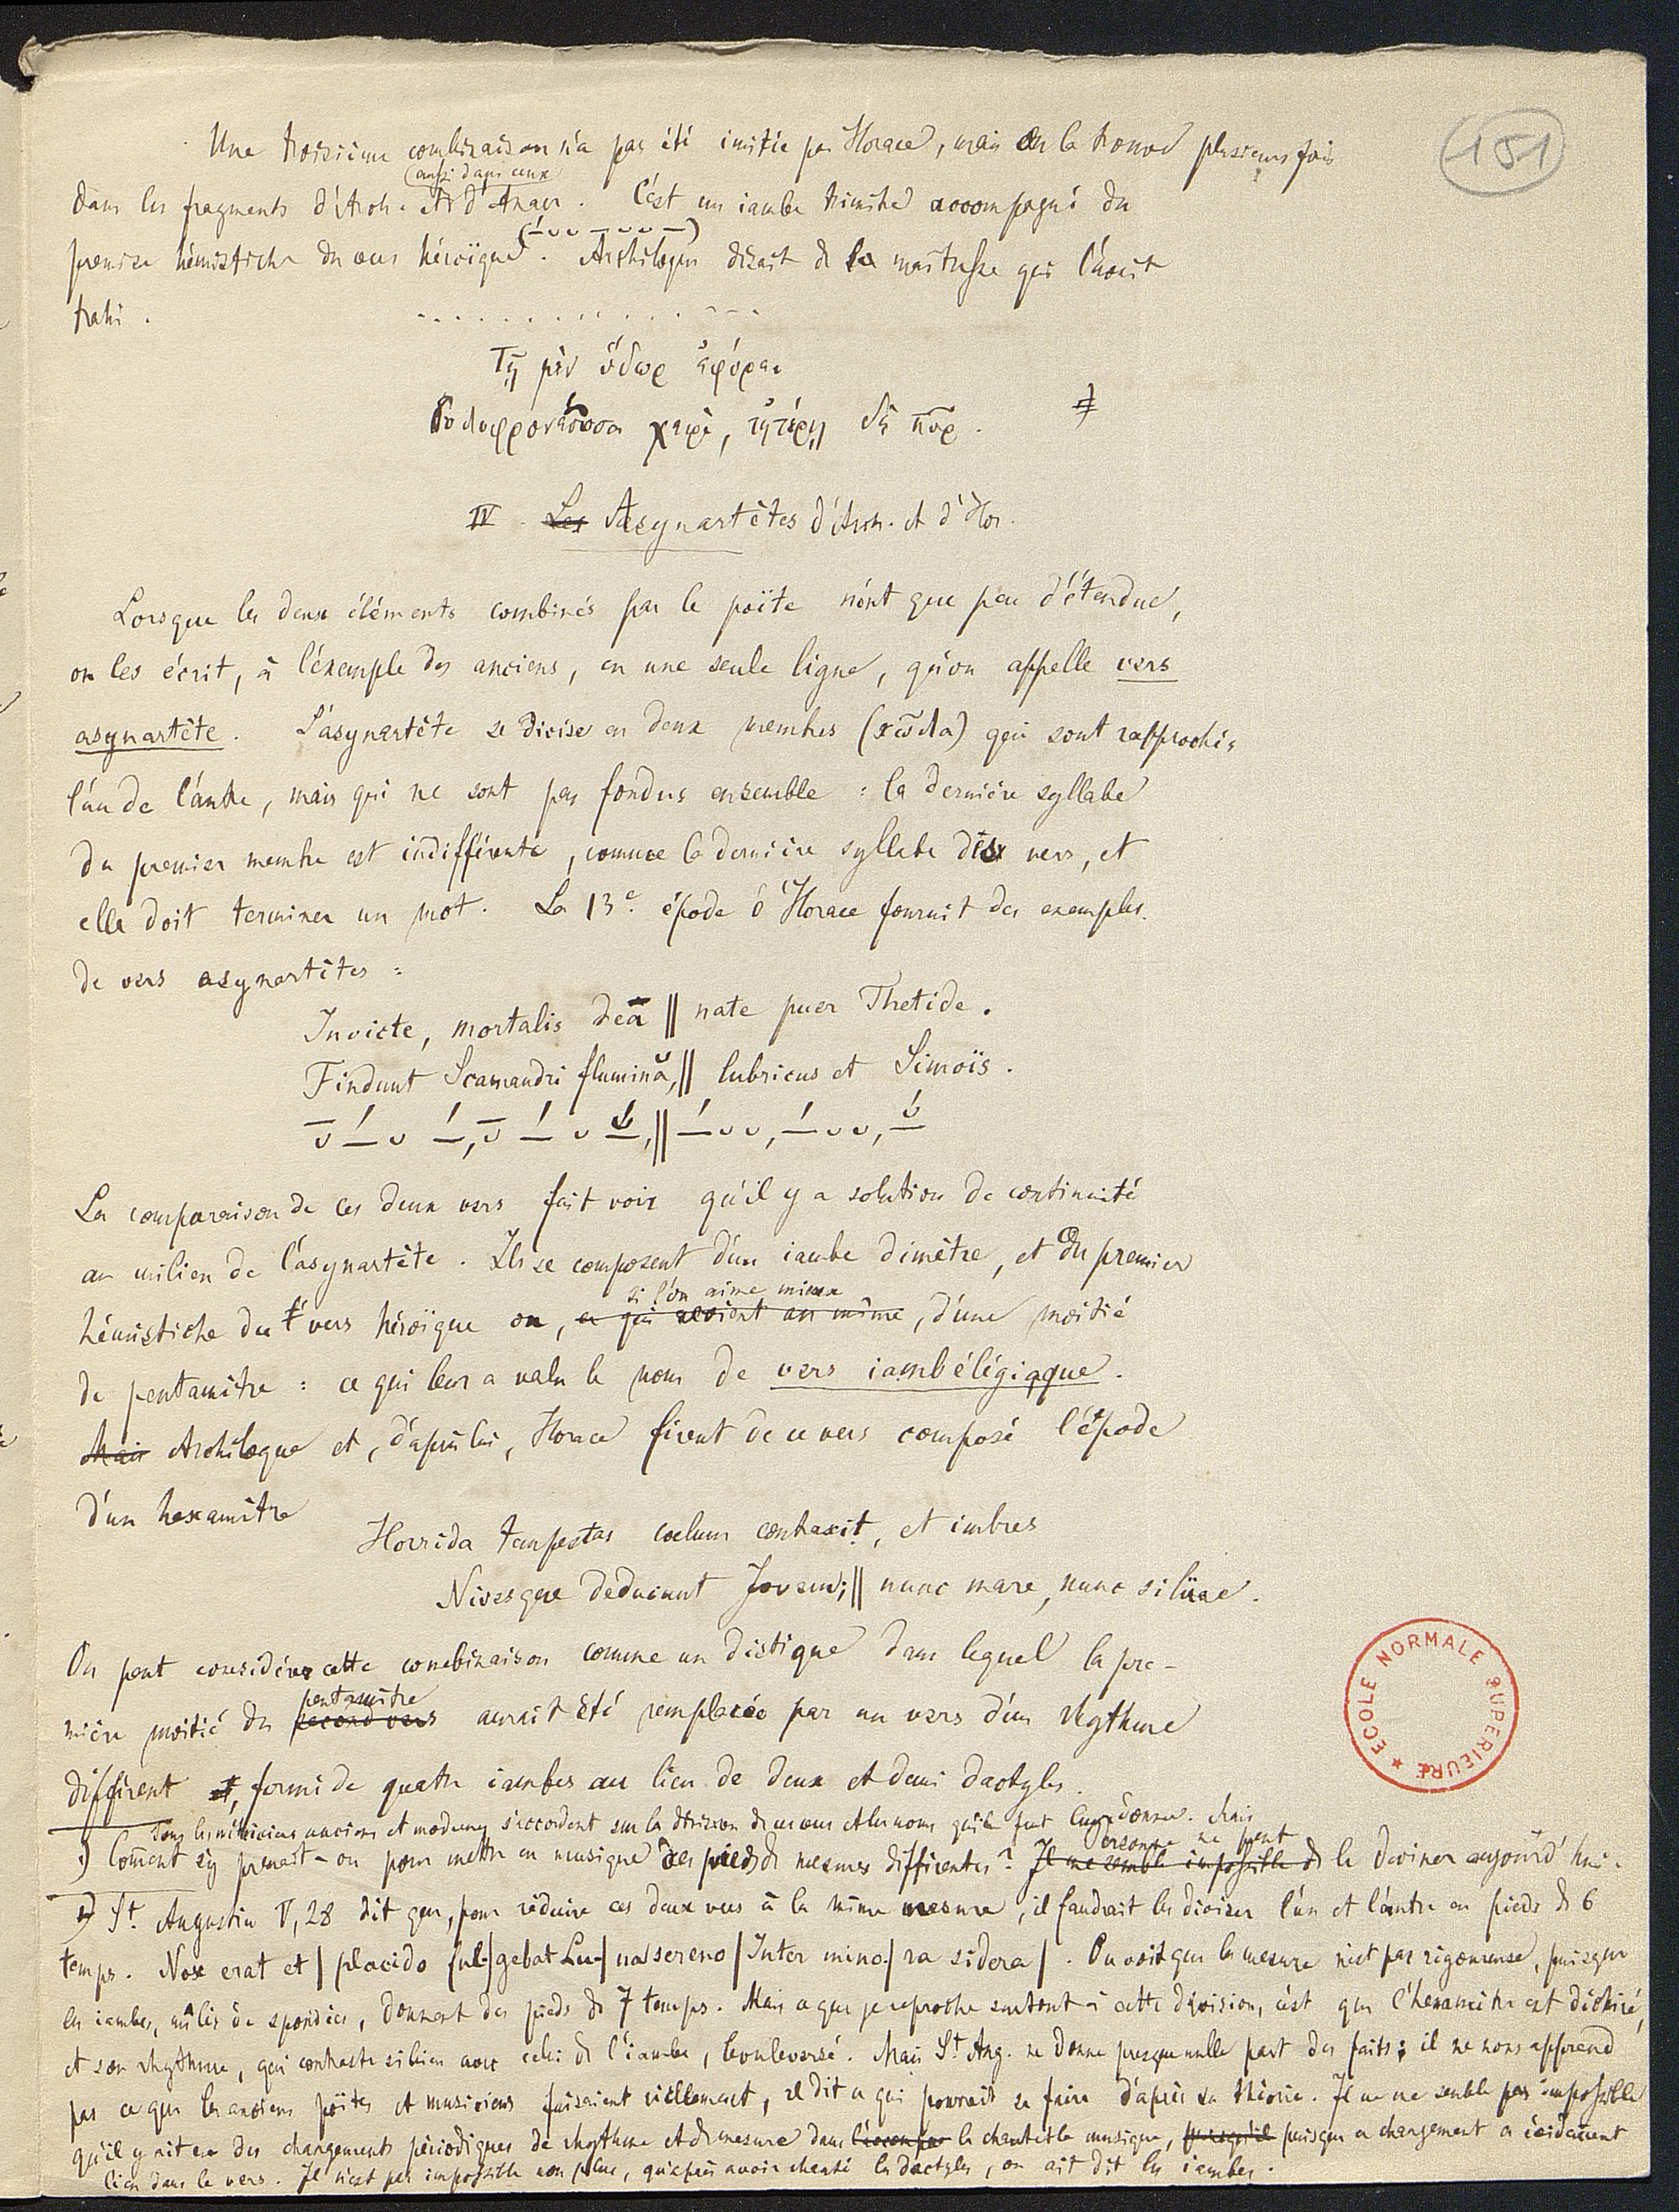 151
Une troisième combinaison n'a pas été imitée par Horace, mais on la trouve plusieurs fois
(aussi dans ceux
dans les fragments d'Arch. et d'Anacr. C'est un iambe trimètre accompagné du
premier hémistiche du vers héroïque (–́ ᴗ ᴗ – ᴗ ᴗ –). Archiloque disait de sa maîtresse qui l'avait
trahi.
Τῇ μὲν ὕδωρ ἐφόρει
δολοφρονέουσα χειρὶ, τἠτέρῃ δὲ πῦρ.
IV. Les Asynartètes d'Arch. et d'Hor.
Lorsque les deux éléments combinés par le poëte n'ont que peu d'étendue,
on les écrit, à l'exemple des anciens, en une seule ligne, qu'on appelle vers
asynartète. L'asynartète se divise en deux membres (κῶλα) qui sont rapprochés
l'un de l'autre, mais qui ne sont pas fondus ensemble : la dernière syllabe
du premier membre est indifférente, comme la dernière syllabe des vers, et
elle doit terminer un mot. La 13e. épode d'Horace fournit des exemples
de vers asynartètes :
Invicte, mortalis deā || nate puer Thetide.
Findunt Scamandri flumină, || lubricus et Simoïs.
La comparaison de ces deux vers fait voir qu'il y a solution de continuité
au milieu de l'asynartète. Ils se composent d'un iambe dimètre, et du premier
si l'on aime mieux
hémistiche du vers héroïque ou, ce qui revient au même, d'une moitié
de pentamètre : ce qui leur a valu le nom de vers iambélégiaque.
Mais Archiloque et, d'après lui, Horace firent de ce vers composé l'épode
d'un hexamètre
Horrida tempestas coelum contraxit, et imbres
Nivesque deducunt Jovem; || nunc mare, nunc silüae.
On peut considérer cette combinaison comme un distique dans lequel la pre-
pentamètre
mière moitié du second vers aurait été remplacée par un vers d'un rhythme
différent et, formé de quatre iambes au lieu de deux et demi dactyles.
Tous les métriciens anciens et modernes s'accordent sur la division de ces vers et les noms qu'il faut leur donner. Mais
personne ne peut
Coment s'y prenait-on pour mettre en musique des pieds de mesures différentes? Il me semble impossible de le deviner aujourd'hui.
St. Augustin V, 28 dit que, pour réduire ces deux vers à la même mesure, il faudrait les diviser l'un et l'autre en pieds de 6
temps. Nox erat et | placido ful-| gebat Lu-| na sereno | Inter mino-| ra sidera |. On voit que la mesure n'est pas rigoureuse, puisque
les iambes, mêlés de spondées, donnent des pieds de 7 temps. Mais ce que je reproche surtout à cette division, c'est que l'hexamètre est déchiré,
et son rhythme, qui contraste si bien avec celui de l'iambe, bouleversé. Mais St. Aug. ne donne presque nulle part des faits; il ne nous apprend
pas ce que les anciens poëtes et musiciens faisaient réellement, il dit ce qui pourrait se faire d'après sa théorie. Il ne me semble pas impossible
qu'il y ait eu des changements périodiques de rhythme et de mesure dans le chant et la musique, puisqu'il puisque ce changement a évidament
lieu dans le vers. Il n'est pas impossible non plus, qu'après avoir chanté les dactyles, on ait dit les iambes.
ECOLE NORMALE SUPERIEURE